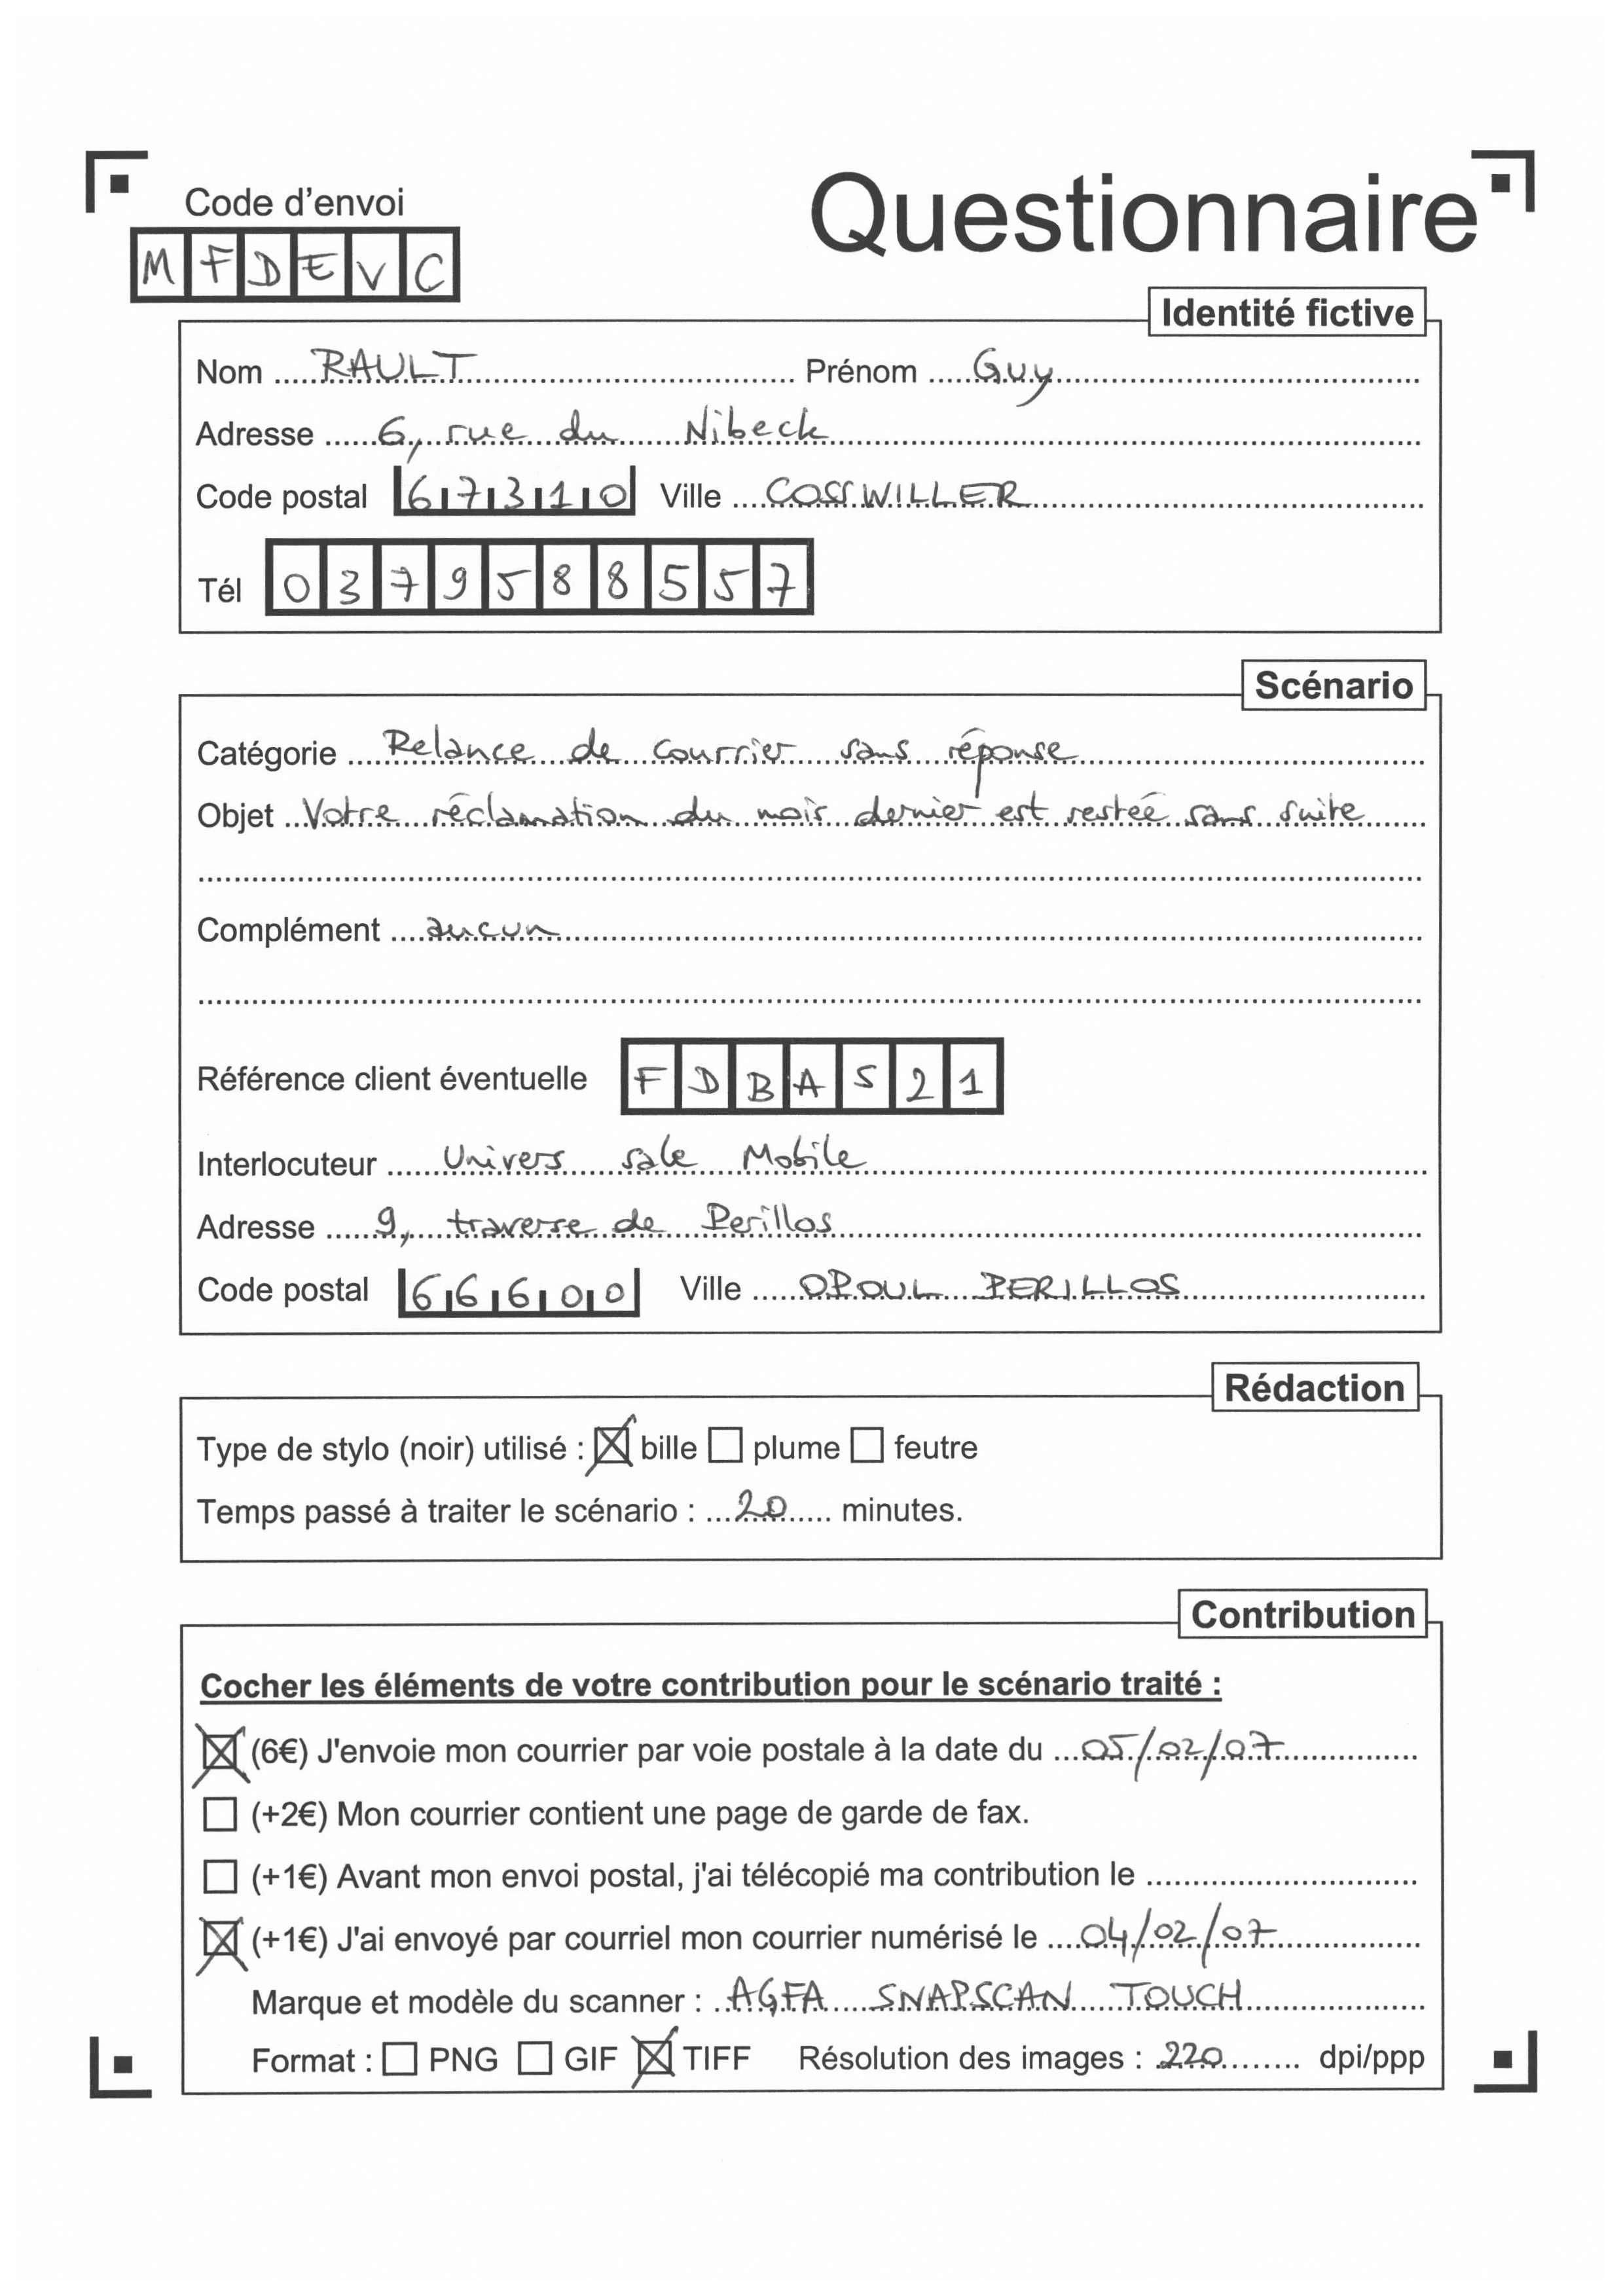 Code d'envoi
Questionnaire
MFDEVC
Identité fictive
Nom RAULT Prénom Guy
Adresse 6, rue du Nibeck
Code postal 67310 Ville COSSWILLER
Tél 0379588557
Scénario
Catégorie Relance de courrier sans réponse
Objet Votre réclamation du mois dernier est restée sans suite
Complément aucun
Référence client éventuelle FDBAS21
Interlocuteur Univers sale Mobile
Adresse 9, traverse de Perillos
Code postal 66600 Ville OPOUL PERILLOS
Rédaction
Type de stylo (noir) utilisé : ☒ bille ☐ plume ☐ feutre
Temps passé à traiter le scénario : 20 minutes.
Contribution
Cocher les éléments de votre contribution pour le scénario traité :
☒ (6€) J'envoie mon courrier par voie postale à la date du 05/02/07
☐ (+2€) Mon courrier contient une page de garde de fax.
☐ (+1€) Avant mon envoi postal, j'ai télécopié ma contribution le
☒ (+1€) J'ai envoyé par courriel mon courrier numérisé le 04/02/07
Marque et modèle du scanner : AGFA SNAPSCAN TOUCH
Format : ☐ PNG ☐ GIF ☒ TIFF Résolution des images : 220 dpi/ppp